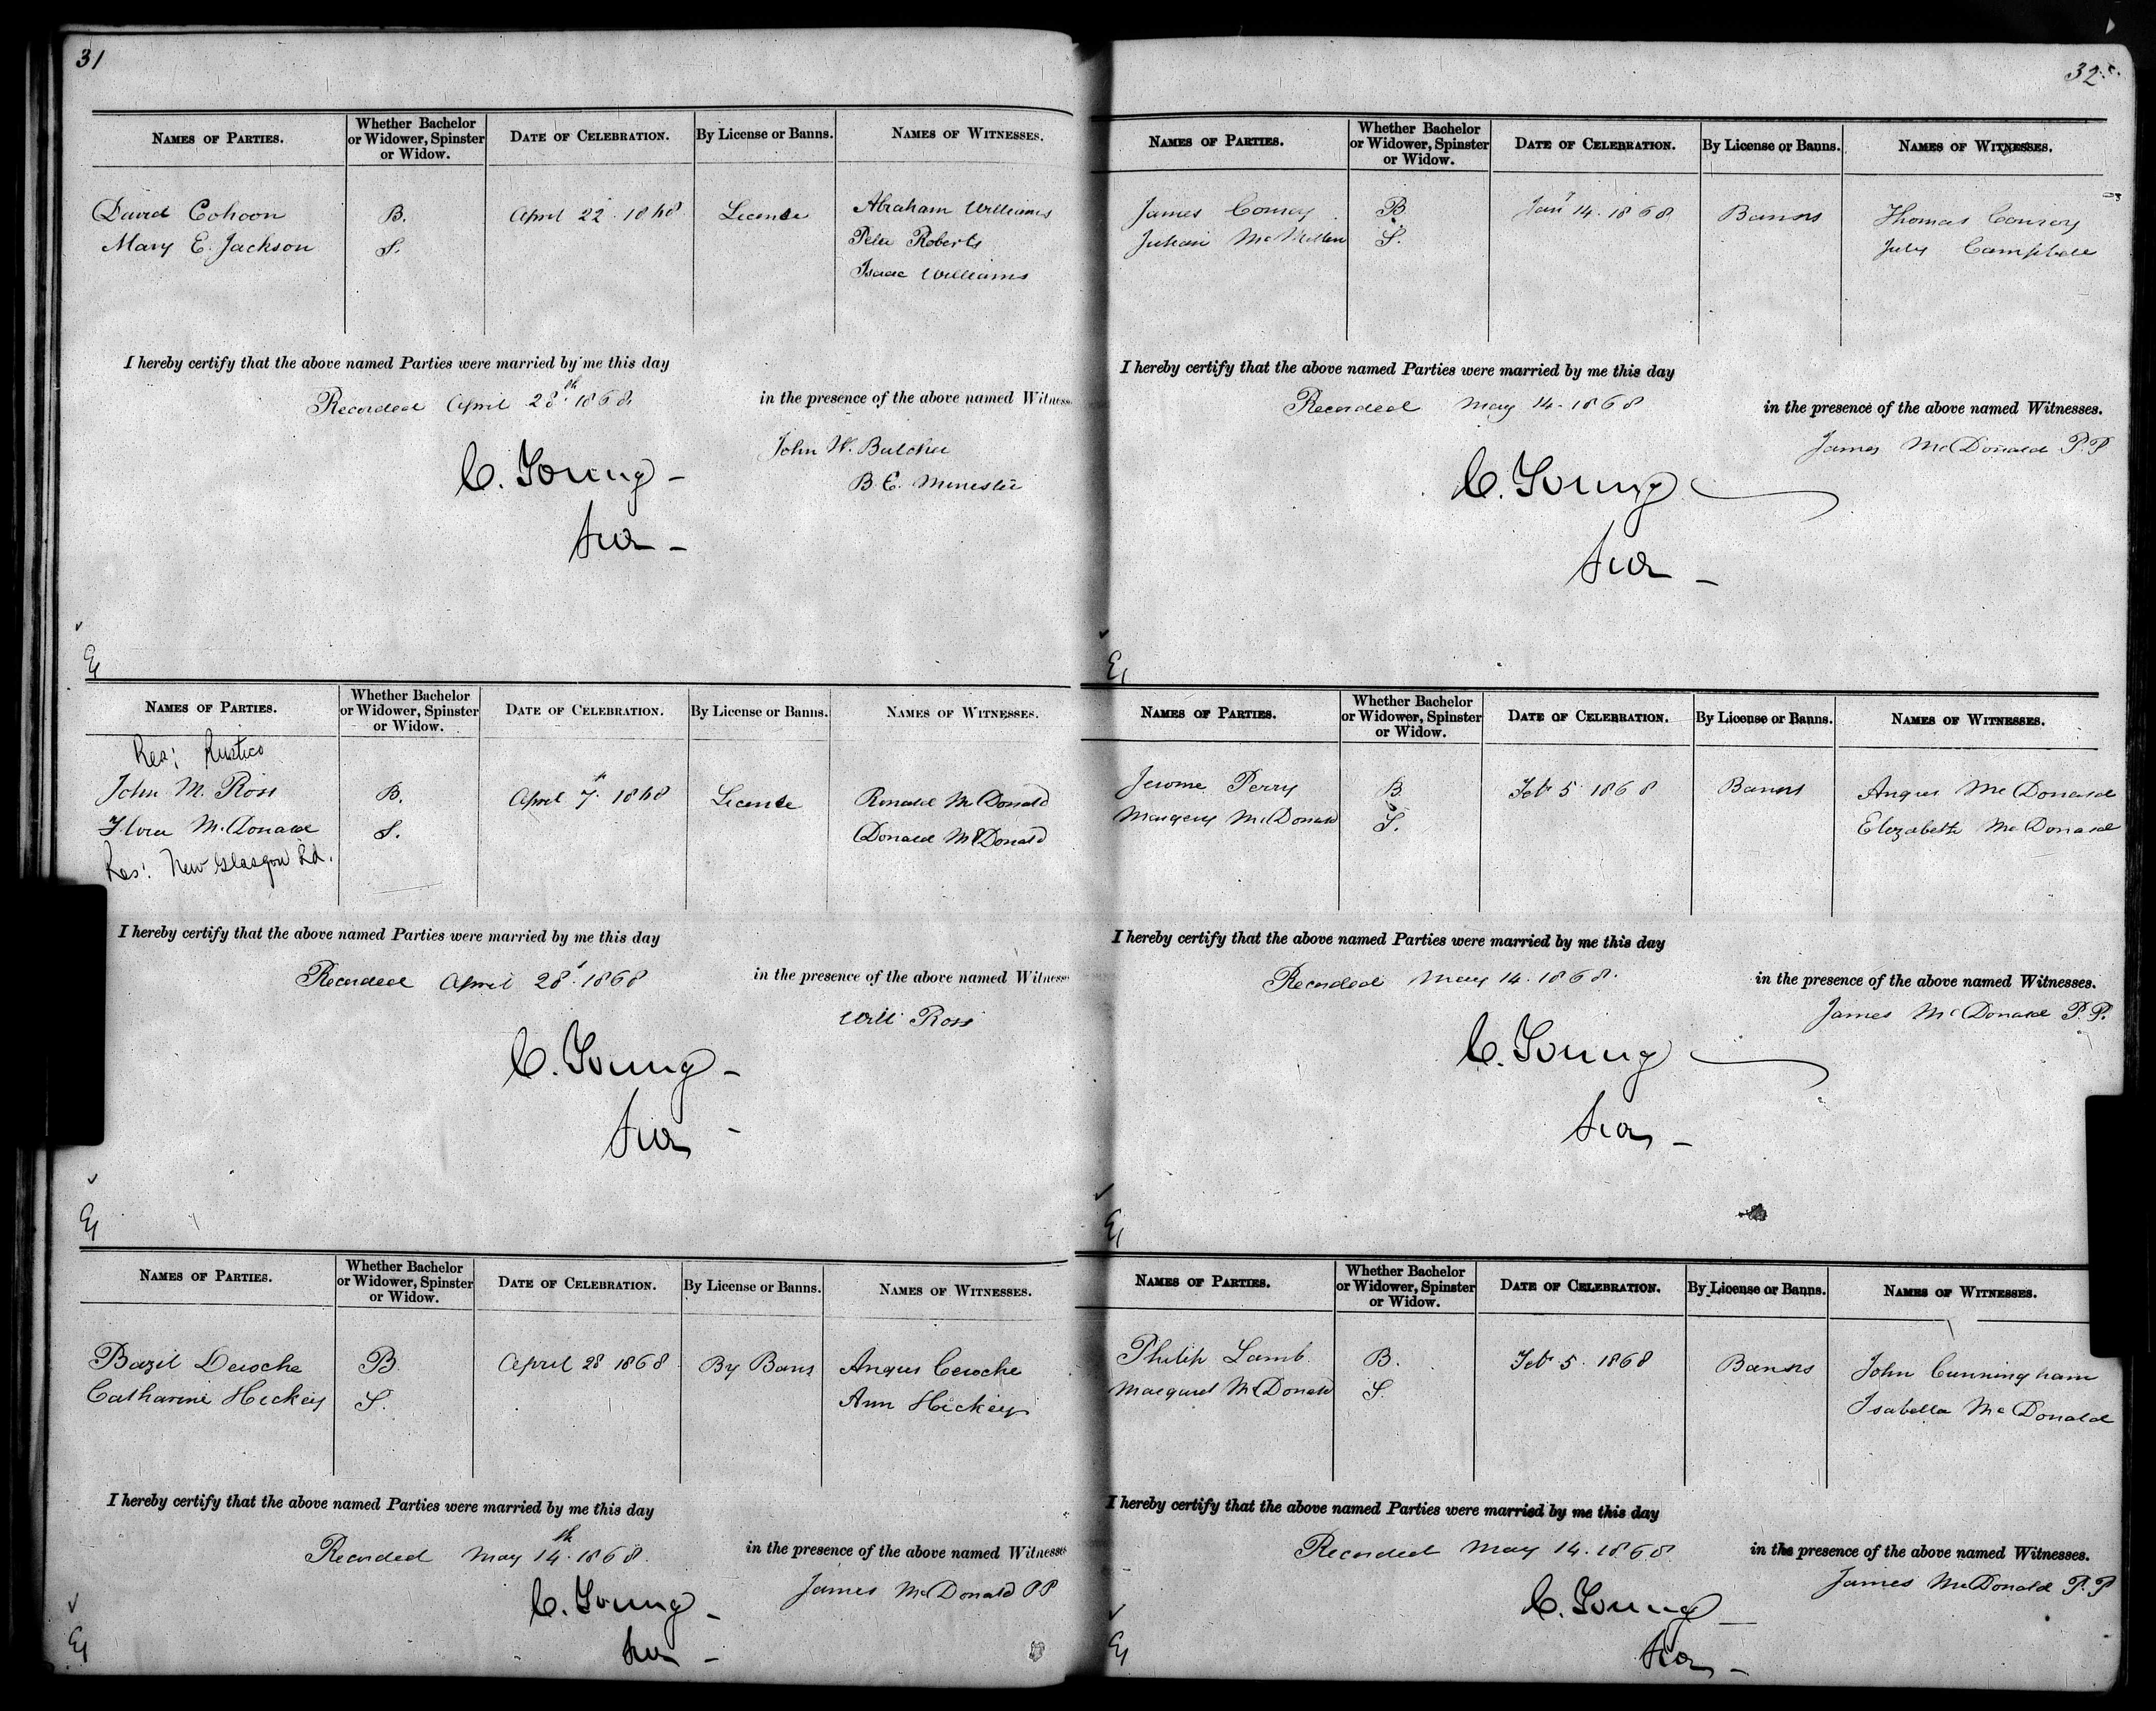 31
NAMES OF PARTIES. Whether Bachelor or Widower, Spinster or Widow. DATE OF CELEBRATION. By License or Banns. NAMES OF WITNESSES.
David Cohoon B. April 22. 1868 License Abraham Williams
Mary E. Jackson S. Peter Roberts
Isaac Williams
I hereby certify that the above named Parties were married by me this day
Recorded April 28th 1868. in the presence of the above named Witness
John W. Butcher
C. Young -
B. C. Minister
NAMES OF PARTIES. Whether Bachelor or Widower, Spinster or Widow. DATE OF CELEBRATION. By License or Banns. NAMES OF WITNESSES.
Res: Rustico
John M. Ross B. April 7. 1868 License Ronald McDonald
Flora McDonald S. Donald McDonald
Res: New Glasgow Rd.
I hereby certify that the above named Parties were married by me this day
Recorded April 28. 1868 in the presence of the above named Witness
Will Ross
C. Young -
NAMES OF PARTIES. Whether Bachelor or Widower, Spinster or Widow. DATE OF CELEBRATION. By License or Banns. NAMES OF WITNESSES.
Bazil Deroche B. April 28 1868 By Bans Angus Deroche
Catharine Hickey S. Ann Hickey
I hereby certify that the above named Parties were married by me this day
Recorded May 14th 1868. in the presence of the above named Witnesses
James McDonald PP
C. Young -
32
NAMES OF PARTIES. Whether Bachelor or Widower, Spinster or Widow. DATE OF CELEBRATION. By License or Banns. NAMES OF WITNESSES.
James Conroy B. Jany 14. 1868 Banns Thomas Conroy
Julian McMillan S. July Campbell
I hereby certify that the above named Parties were married by me this day
Recorded May 14. 1868 in the presence of the above named Witnesses.
James McDonald P.P
C. Young
NAMES OF PARTIES. Whether Bachelor or Widower, Spinster or Widow. DATE OF CELEBRATION. By License or Banns. NAMES OF WITNESSES.
Jerome Perry B. Feb 5 1868 Banns Angus McDonald
Margery McDonald S. Elizabeth McDonald
I hereby certify that the above named Parties were married by me this day
Recorded May 14. 1868. in the presence of the above named Witnesses.
James McDonald P.P.
C. Young
NAMES OF PARTIES. Whether Bachelor or Widower, Spinster or Widow. DATE OF CELEBRATION. By License or Banns. NAMES OF WITNESSES.
Philip Lamb B. Feb 5. 1868 Banns John Cunningham
Margaret McDonald S. Isabella McDonald
I hereby certify that the above named Parties were married by me this day
Recorded May 14. 1868 in the presence of the above named Witnesses.
James McDonald P.P
C. Young